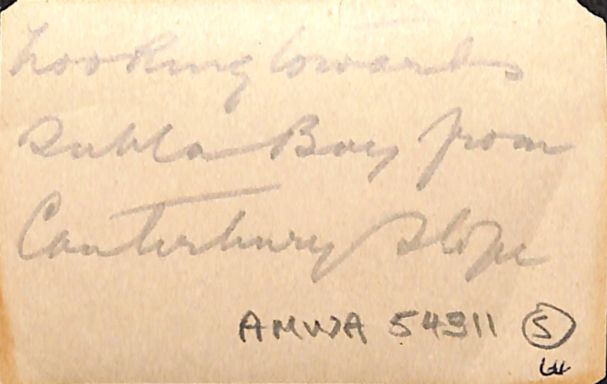 Looking towards
Suvla Bay from
Canterbury Slope
AMWA 54911 (S)